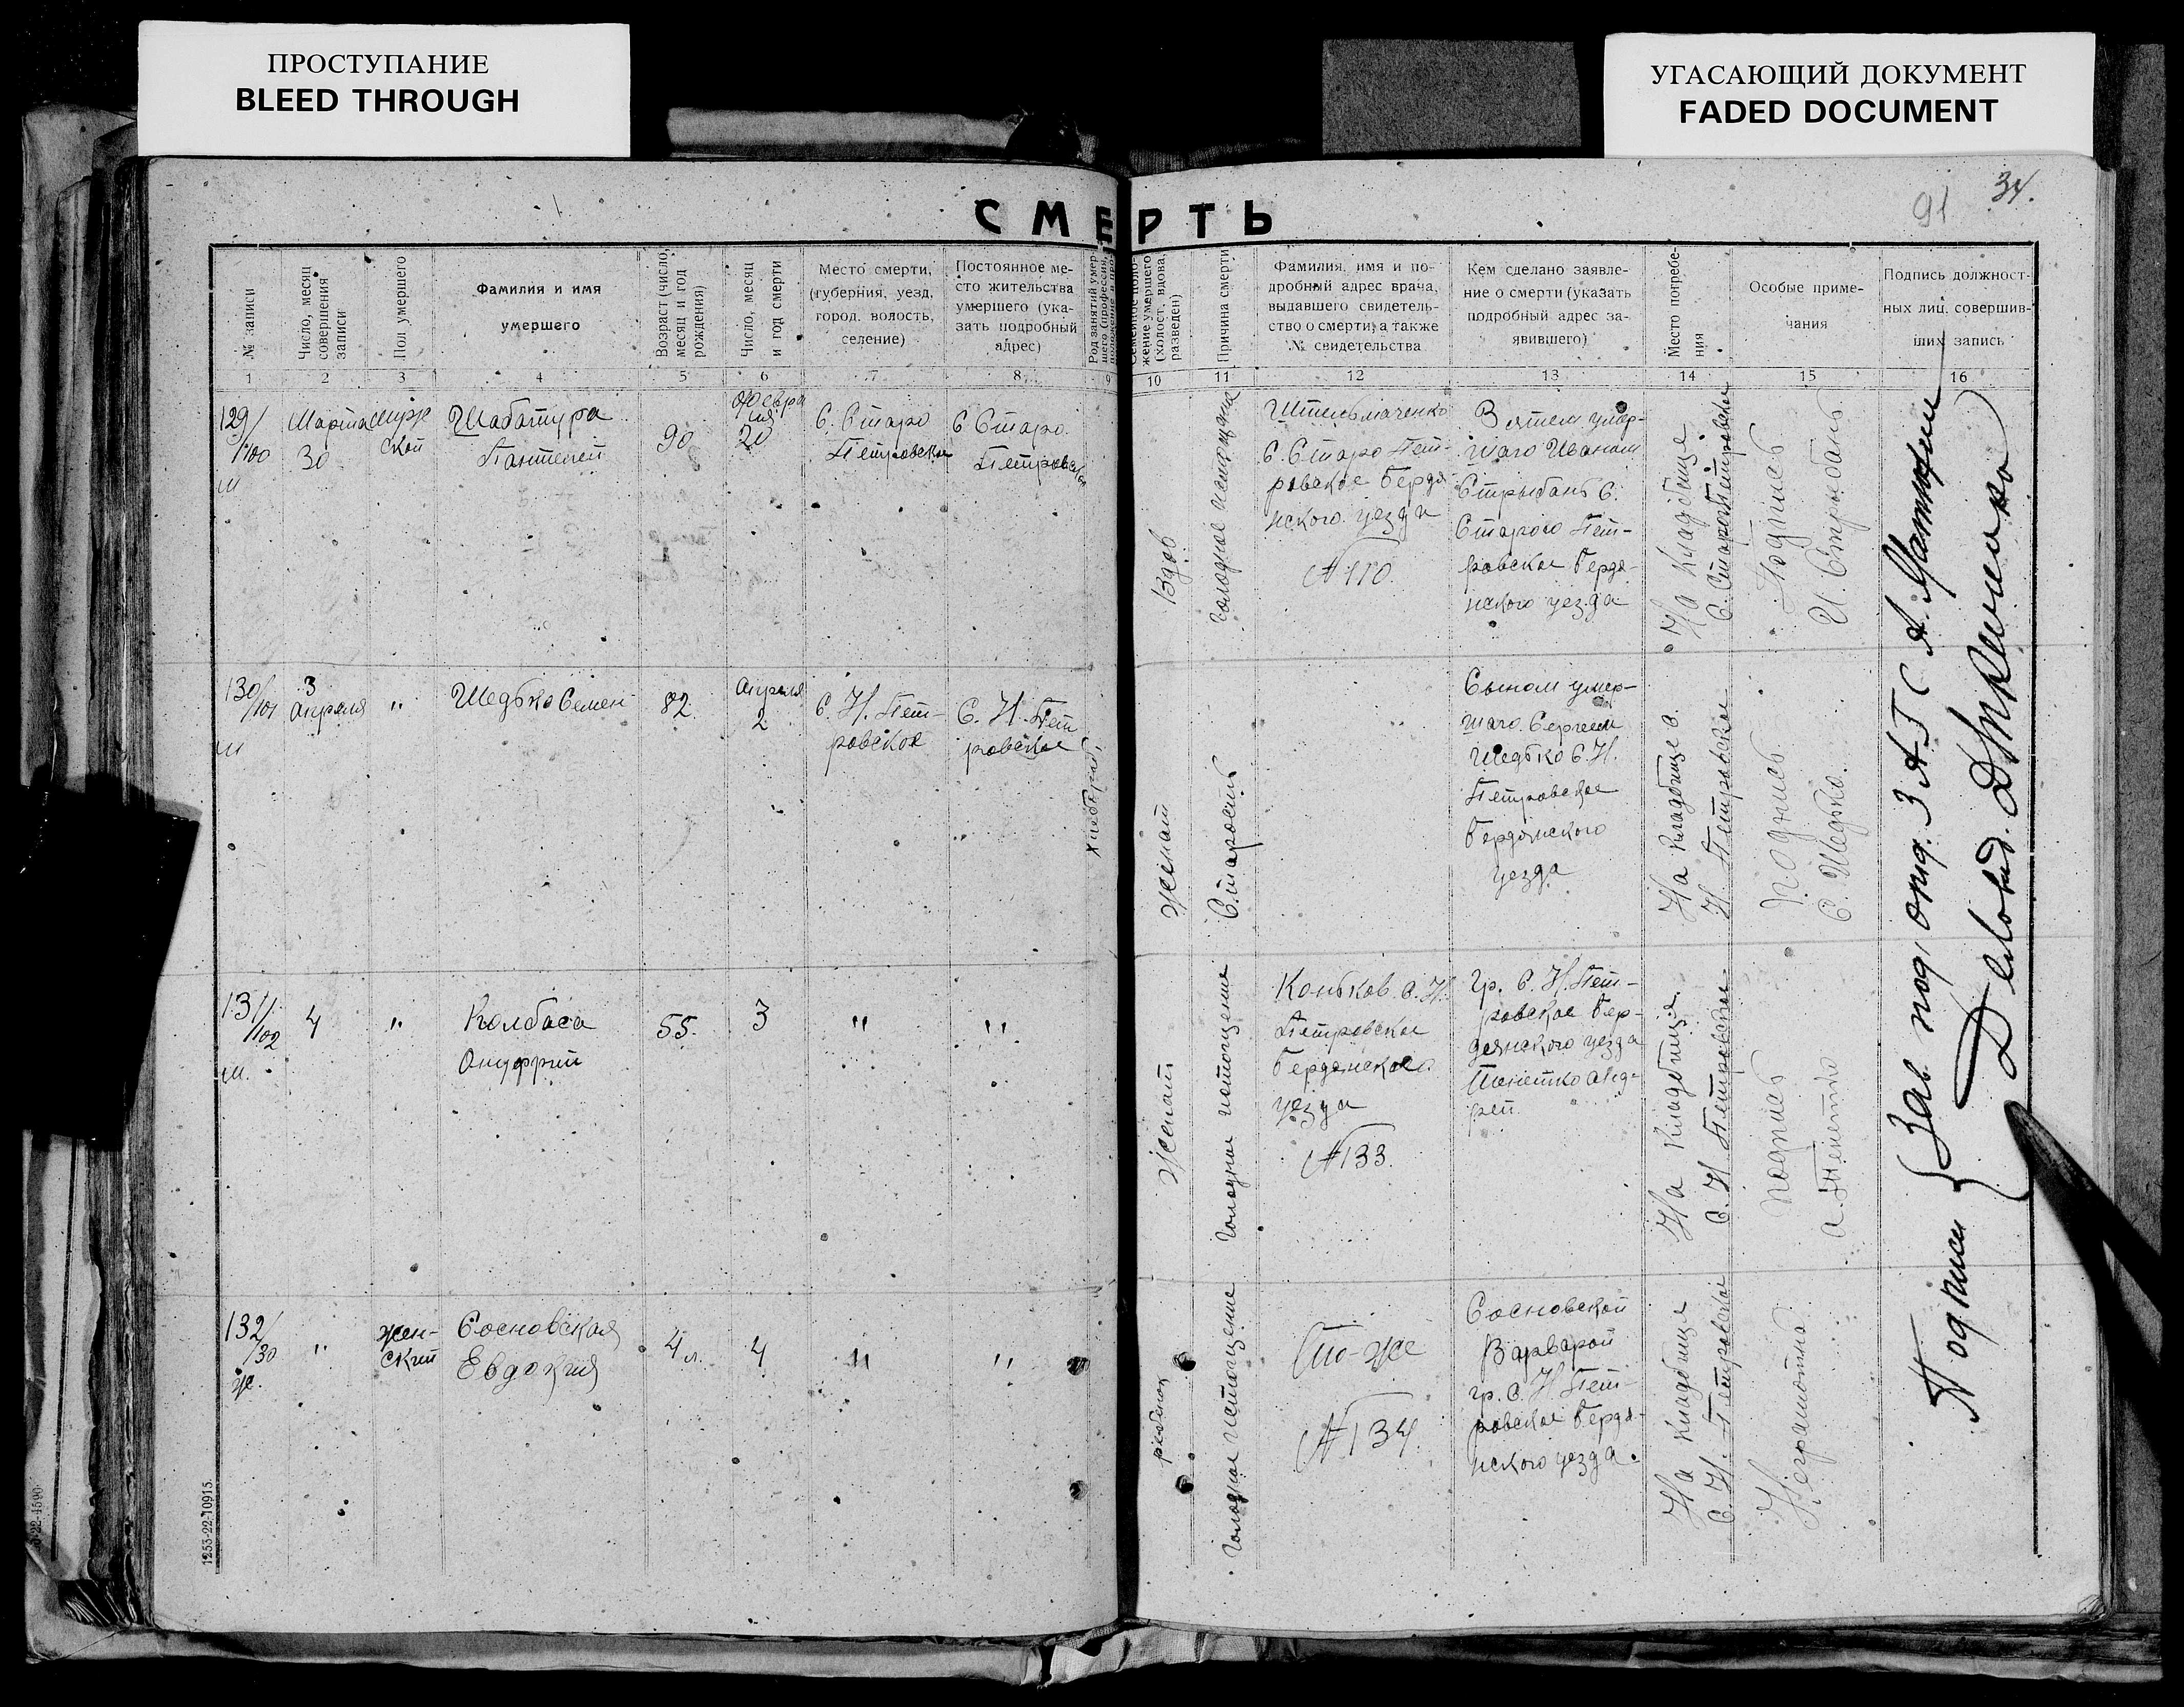 ПРОСТУПАНИЕ
BLEED THROUGH
УГАСАЮЩИЙ ДОКУМЕНТ
FADED DOCUMENT
91
34.
СМЕРТЬ
№ записи
Число, месяц
совершения
записи
Пол умершего
Фамилия и имя
умершего
Возраст (число,
месяц и год
рождения)
Число, месяц
и год смерти
Место смерти,
(губерния, уезд,
город, волость,
селение)
Постоянное ме-
сто жительства
умершего (ука-
зать подробный
адрес)
Род занятий умер-
шего (профессия,
жение умершего
(холост, вдова,
разведен)
Причина смерти
Фамилия, имя и по-
дробный адрес врача,
выдавшего свидетель-
ство о смерти, а также
№ свидетельства
Кем сделано заявле-
ние о смерти (указать
подробный адрес за-
явившего)
Место погребе-
ния
Особые приме-
чания
Подпись должност-
ных лиц, совершив-
ших запись
1 2 3 4 5 6 7 8 9 10 11 12 13 14 15 16
129/
100
м
Марта
30
Муж
ской
Шабатура
Пантелей
90
Февра
ля
20
С. Старо
Петровское
С Старо
Петровское
Вдов
Голодное истощение
Штельмаченко
С. Старо Пет-
ровское Бердя
нского уезда
№110.
Зятем умер-
шаго Иваном
Стрыбань С.
Старою Пет-
ровское Бердя-
нского уезда
На кладбище
С. Старо Петровском
Подпись
И. Стрыбань
130/
101
м
3
Апреля
"
Шедько Семен
82
Апреля
2
С. Н. Пет-
ровское
С. Н. Пет
ровское
хлебороб,
Женат
Старость
Сыном умер-
шаго Сергеем
Шедько С. Н.
Петровское
Бердянского
уезда
На кладбище в.
Н. Петровском
Подпись
С. Шедько.
131/
102
м.
4
"
Колбаса
Онуфрий
55.
3
"
"
Женат
Голодное истощение
Коньков С. Н.
Петровское
Бердянского
уезда
№133.
Гр. С. Н. Пет-
ровское Бер-
дянского уезда
Анд-
рей
На кладбище
С. Н. Петровском
подпись
132/
30
ж.
"
жен-
ский
Сосновская
Евдокия
4 л.
4
"
"
ребенок
Голодное истощение
То-же
№134.
Сосновской
Варварой
гр. С. Н Пет-
ровское Бердя-
нского уезда.
На кладбище
С. Н. Петровском
Неграмотна
Подписи { Зав. подотд. ЗАГС А.
Деловод.
1253-22-10915.